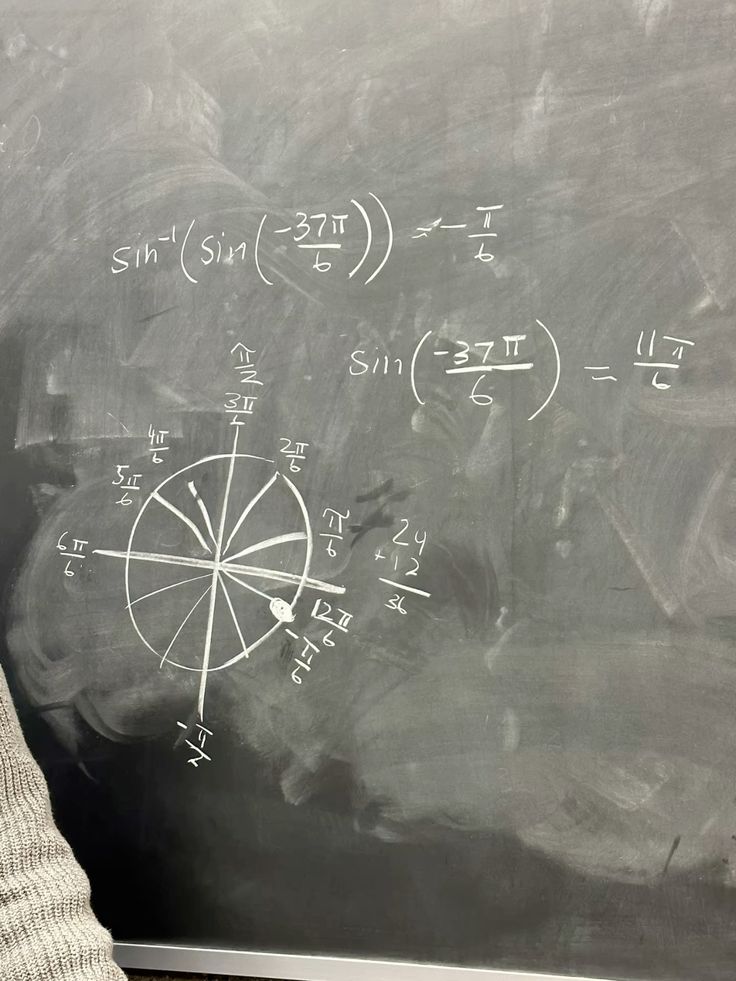 sin⁻¹(sin(-37π/6)) = -π/6
sin(-37π/6) = 11π/6
π/2
3π/6
4π/6
2π/6
5π/6
π/6
6π/6
24
+12
36
12π/6
-π/6
-π/2